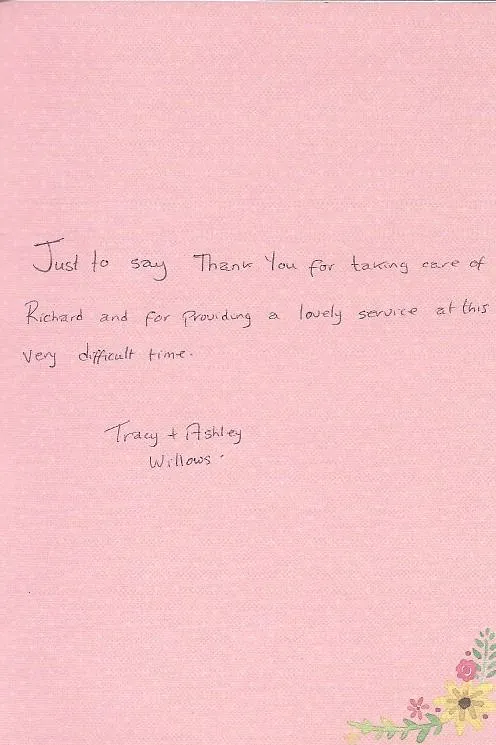 Just to say Thank You for taking care of
Richard and for providing a lovely service at this
very difficult time.
Tracy + Ashley
Willows